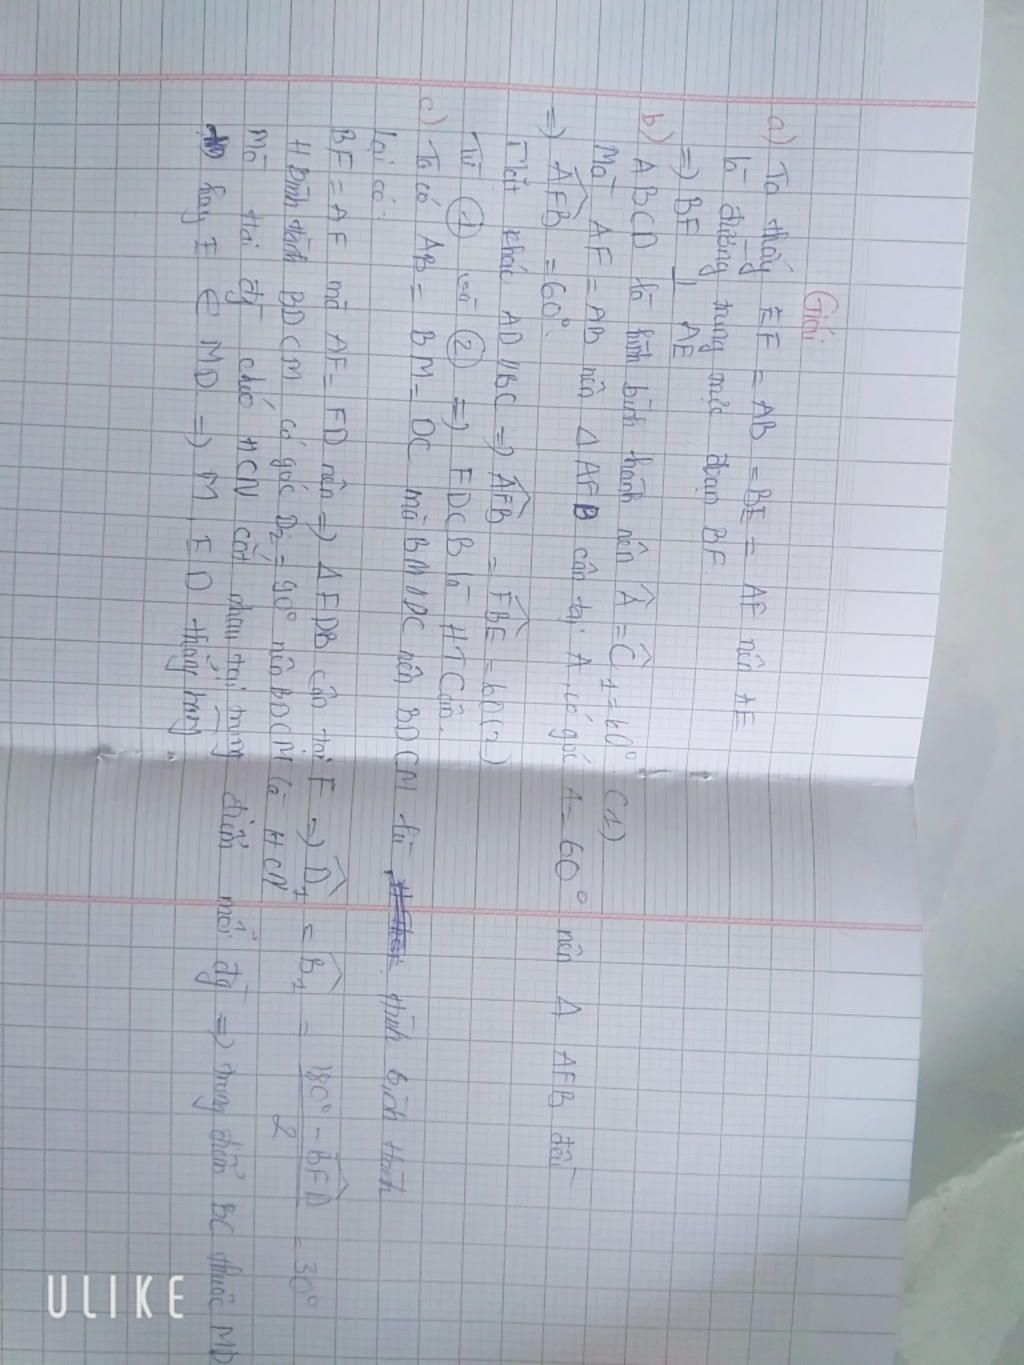 Giải
a) Ta thấy EF = AB = BE = AF nên AE
là đường trung trực đoạn BF.
=> BF ⊥ AE
b) ABCD là hình bình hành nên Â = Ĉ1 = 60° (1)
Mà AF = AB nên Δ AFB cân tại A, có góc A = 60° nên Δ AFB đều
=> AFB = 60°.
Mặt khác AD // BC => AFB = FBE = 60 (2)
Từ (1) và (2) => FDCB là HTCân.
c) Ta có AB = BM = DC mà BM // DC nên BDCM là hình bình hành
Lại có:
BF = AF mà AF = FD nên => Δ FDB cân tại F => D1 = B1 = 180° - BFD / 2 = 30°
Hbình hành BDCM có góc D2 = 90° nên BDCM là HCN
Mà tại chéo HCN cắt nhau tại trung điểm mỗi đg => trung điểm BC thuộc MD
hay E ∈ MD => M, E, D thẳng hàng
ULIKE